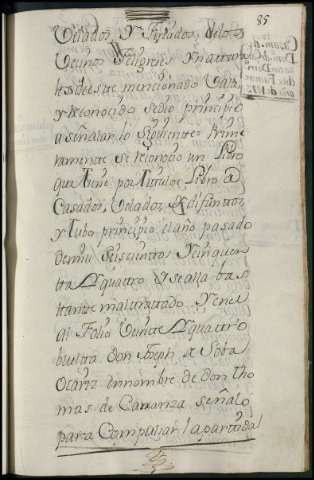 85
Velados, Y finados, delos
Vecinos feligreses Ynatura
les deeste mencionado Valle
y Reconocido sedio principio
aseñalar lo Siguiente= Prime
ramente Se Reconocio un Libro
que tiene por Titulo= Libro de
Casados, Velados, y difuntos
y tubo principio el año pasado
demil Seiscientos Ycinquen
ta Y quattro Yse alla bas
tante maltratado Yen el
al folio Veinte Y quattro
buelta don Joseph de Sota
en nombre de don tho
mas de Carranza señalo
para Compulsar la partida